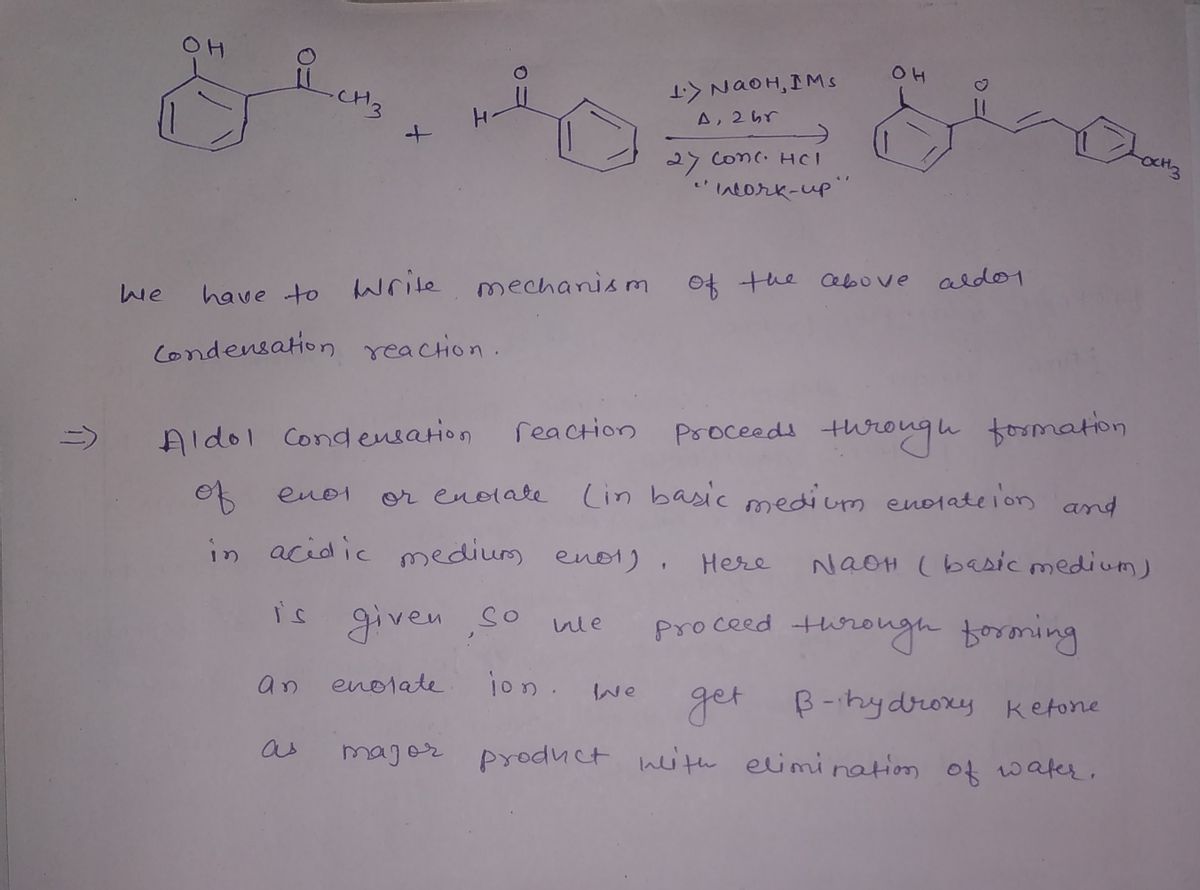 OH
O
CH3
+
O
H
1.> NaOH, IMs
Δ, 2 hr
2> Conc. HCl
"Work-up"
OH
O
OCH3
We have to Write mechanism of the above aldol
Condensation reaction.
⇒ Aldol Condensation reaction Proceeds through formation
of enol or enolate (in basic medium enolate ion and
in acidic medium enol). Here NaOH (basic medium)
is given, so we proceed through forming
an enolate ion. We get β-hydroxy Ketone
as major product with elimination of water.